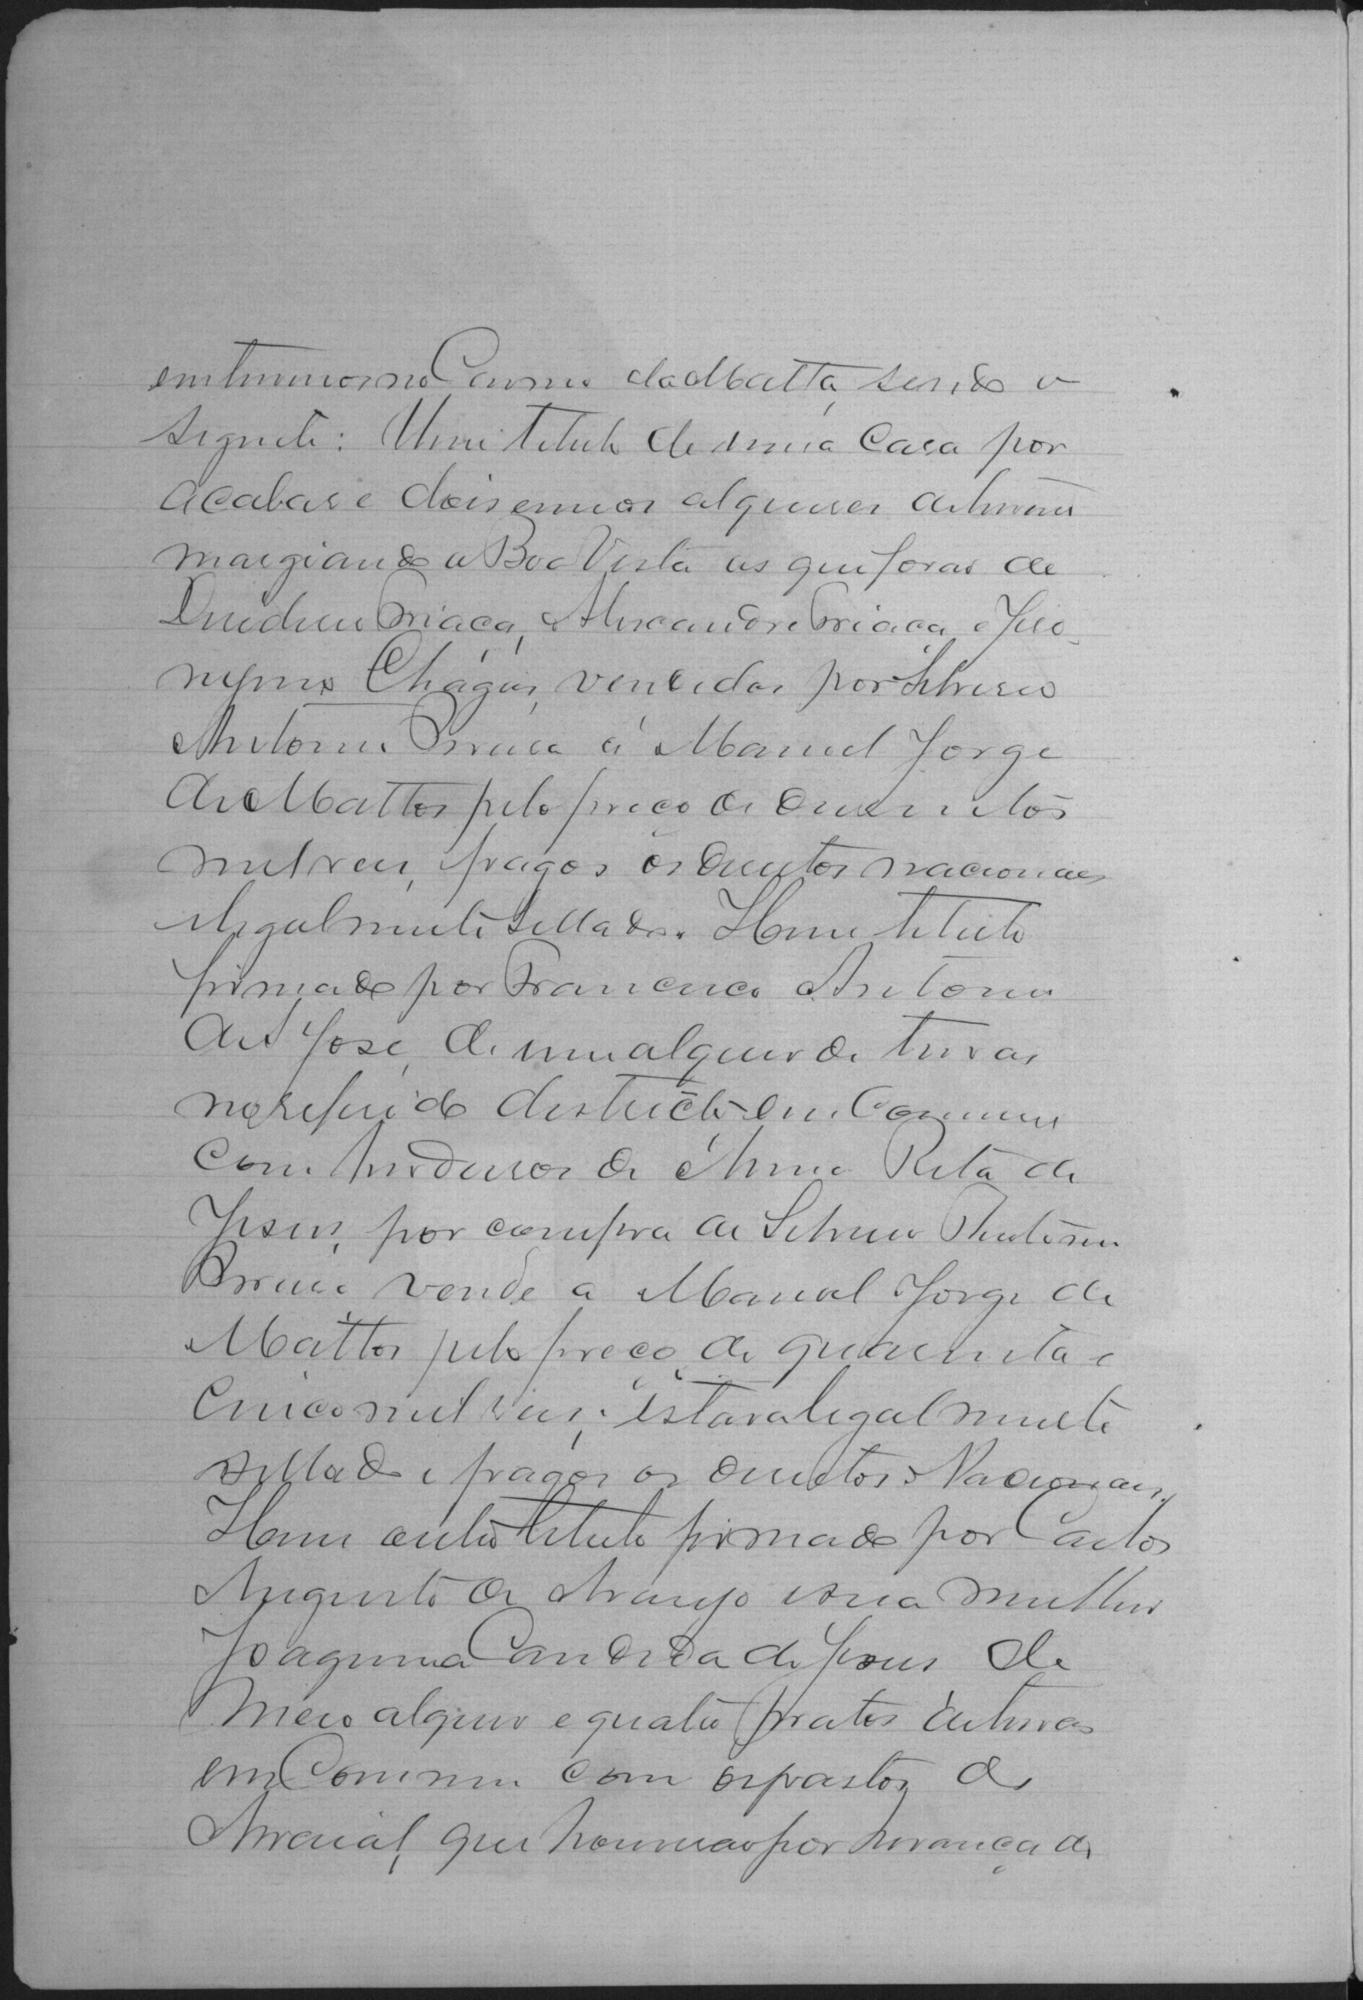 em terrenos no Carmo da Matta, sendo o
seguite: Um titulo de uma casa por
acabar e dois e meios alqueires de terras
margiando a Boa Vista as que foras de
Friaça, Alexandre Friaça e Jero-
nymo Chagas, vendidas por Silverio
Antonio á Manuel Jorge
de Mattos pelo preço de duzentos
mil reis, e pagos os direitos nacionaes
e legalmente sellado. Hum titulo
firmado por Francisco Antonio
de S José, de um alqueire de terras
no referido districto em Commum
com herdeiros de Anna Rita de
Jesus, por compra de Silverio Antonio
vende a Manoel Jorge de
Mattos pelo preço de quarenta e
cinco mil reis; estava legalmente
sellado e pagos os direitos Nacionaes.
Hum outro titulo firmado por Carlos
Augusto de Araujo e sua mulher
Joaquina Candida de Jesus de
Meio alqueire e quatro pratos de terras
em Commum com os pastos do
Arraial, que houverão por herança de